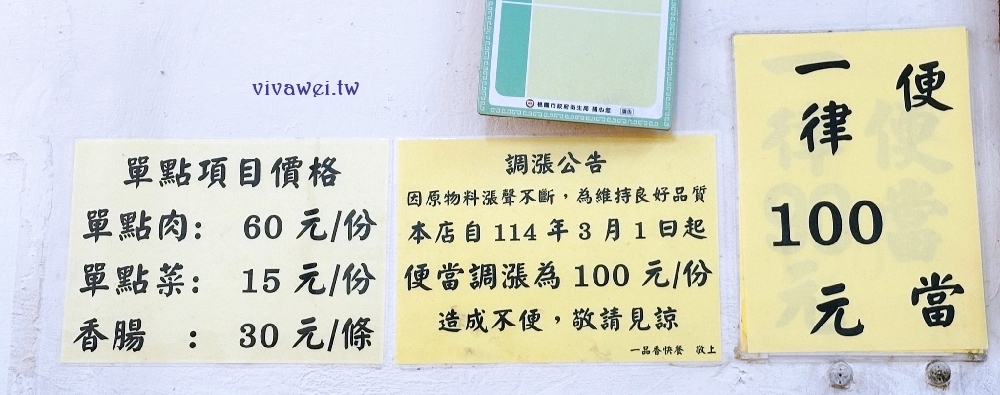 vivawei.tw
單點項目價格
單點肉: 60 元/份
單點菜: 15 元/份
香腸 : 30 元/條
調漲公告
因原物料漲聲不斷，為維持良好品質
本店自 114 年 3 月 1 日起
便當調漲為 100 元/份
造成不便，敬請見諒
一品香快餐 敬上
便當
一律100元